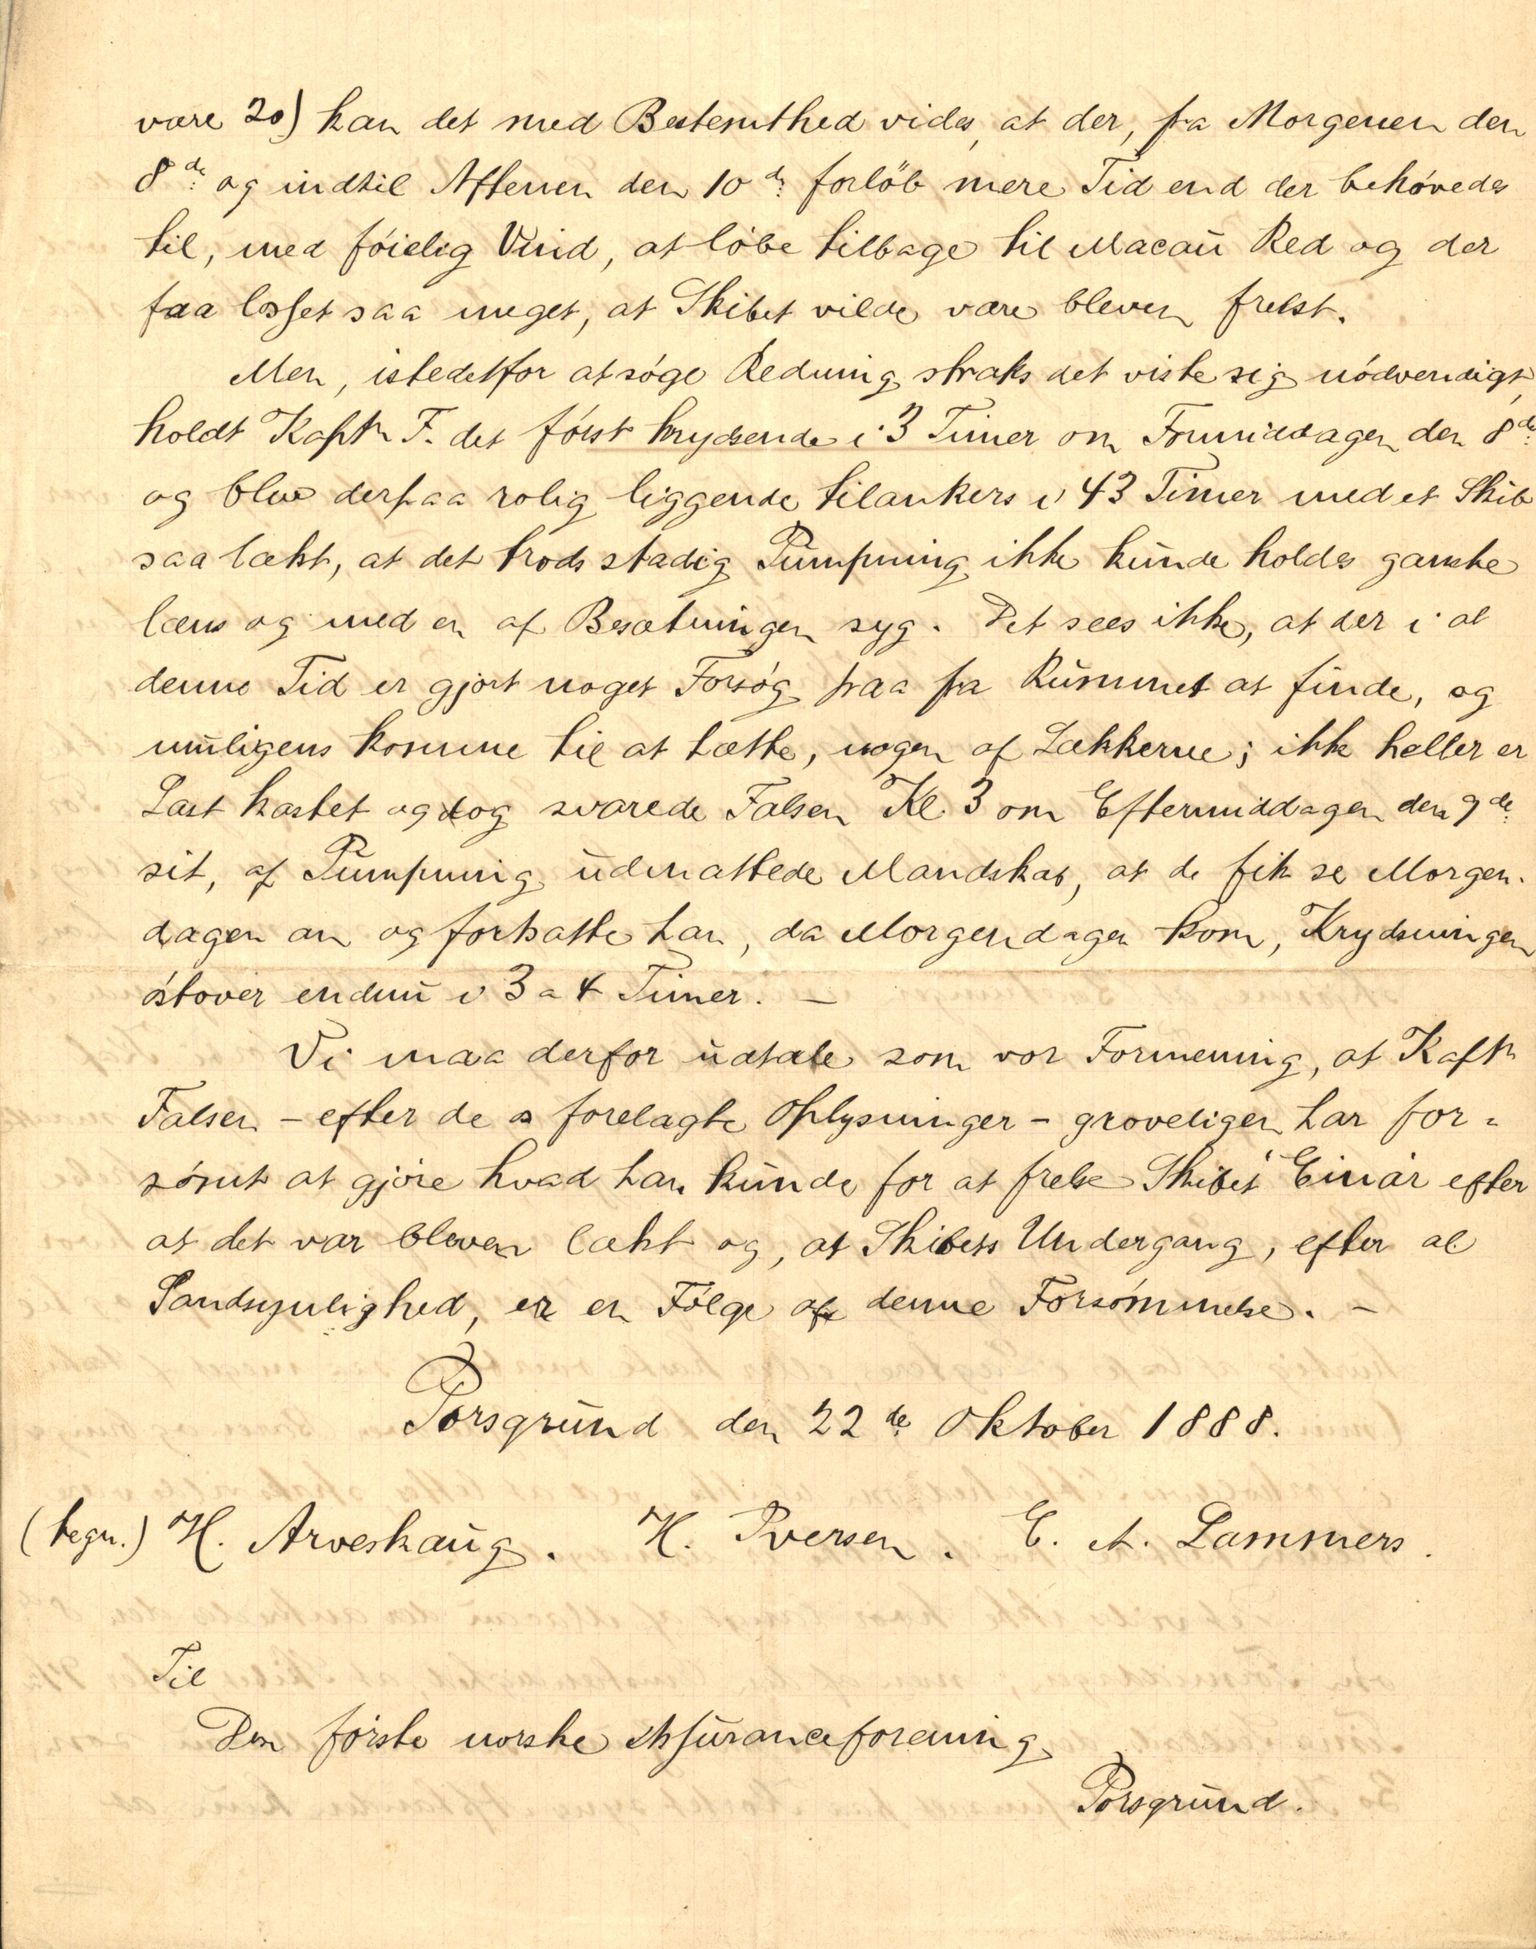 være 20) kan det med Bestemthed vides, at der, fra Morgenen den
8de og indtil Aftenen den 10de forløb mere Tid end der behøvedes
til, med føielig Vind, at løbe tilbage til Macau Red og der
faa losset saa meget, at Skibet vilde være bleven frelst.
Men, istedetfor at søge Redning straks det viste sig nødvendigt,
holdt Kaptn F. det først krydsende i 3 Timer om Formiddagen den 8de
og blev derpaa rolig liggende tilankers i 43 Timer med et Skib
saa lækt, at det trods stadig Pumpning ikke kunde holdes ganske
læns og med en af Besætningen syg. Det sees ikke, at der i al
denne Tid er gjort noget Forsøg paa fra Rummet at finde, og
muligens komme til at tætte, nogen af Lækkerne; ikke heller er
Last kastet og dog svarede Falsen Kl. 3 om Eftermiddagen den 9de
sit, af Pumpning udmattede Mandskab, at de fik se Morgen-
dagen an og fortsatte han, da Morgendagen kom, Krydsningen
østover endnu i 3 a 4 Timer. —
Vi maa derfor udtale som vor Formening, at Kaptn
Falsen – efter de os forelagte Oplysninger – groveligen har for-
sømt at gjøre hvad han kunde for at frelse Skibet Einar efter
at det var bleven lækt og, at Skibets Undergang, efter al
Sandsynlighed, er en Følge af denne Forsømmelse. —
Porsgrund den 22de Oktober 1888.
(tegn.) H. Arveskaug. H. Iversen. E. A. Lammers.
Til
Den første norske Assuranceforening
Porsgrund.